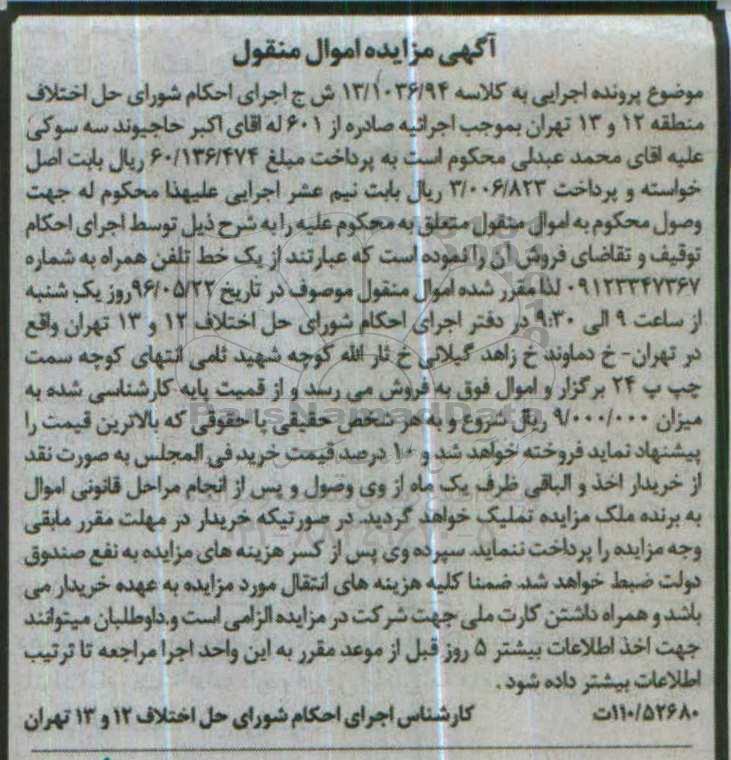 آگهی مزایده اموال منقول
موضوع پرونده اجرایی به کلاسه ۱۳/۱۰۳۶/۹۴ ش ج اجرای احکام شورای حل اختلاف
منطقه ۱۲ و ۱۳ تهران بموجب اجرائیه صادره از ۶۰۱ له اقای اکبر حاجیوند سه سوکی
علیه اقای محمد عبدلی محکوم است به پرداخت مبلغ ۶۰/۱۳۶/۴۷۴ ریال بابت اصل
خواسته و پرداخت ۳/۰۰۶/۸۲۳ ریال بابت نیم عشر اجرایی علیهذا محکوم له جهت
وصول محکوم به اموال منقول متعلق به محکوم علیه را به شرح ذیل توسط اجرای احکام
توقیف و تقاضای فروش آن را نموده است که عبارتند از یک خط تلفن همراه به شماره
۰۹۱۲۲۳۴۷۳۶۷ لذا مقرر شده اموال منقول موصوف در تاریخ ۹۶/۰۵/۲۲روز یک شنبه
از ساعت ۹ الی ۹:۳۰ در دفتر اجرای احکام شورای حل اختلاف ۱۲ و ۱۳ تهران واقع
در تهران- خ دماوند خ زاهد گیلانی خ ثار الله کوچه شهید ثامی انتهای کوچه سمت
چپ پ ۲۴ برگزار و اموال فوق به فروش می رسد و از قمیت پایه کارشناسی شده به
میزان ۹/۰۰۰/۰۰۰ ریال شروع و به هر شخص حقیقی یا حقوقی که بالاترین قیمت را
پیشنهاد نماید فروخته خواهد شد و ۱۰ درصد قیمت خرید فی المجلس به صورت نقد
از خریدار اخذ و الباقی ظرف یک ماه از وی وصول و پس از انجام مراحل قانونی اموال
به برنده ملک مزایده تملیک خواهد گردید. در صورتیکه خریدار در مهلت مقرر مابقی
وجه مزایده را پرداخت ننماید. سپرده وی پس از کسر هزینه های مزایده به نفع صندوق
دولت ضبط خواهد شد. ضمنا کلیه هزینه های انتقال مورد مزایده به عهده خریدار می
باشد و همراه داشتن کارت ملی جهت شرکت در مزایده الزامی است و.داوطلبان میتوانند
جهت اخذ اطلاعات بیشتر ۵ روز قبل از موعد مقرر به این واحد اجرا مراجعه تا ترتیب
اطلاعات بیشتر داده شود .
۱۱۰/۵۲۶۸۰ت کارشناس اجرای احکام شورای حل اختلاف ۱۲ و ۱۳ تهران
ParsNamadData